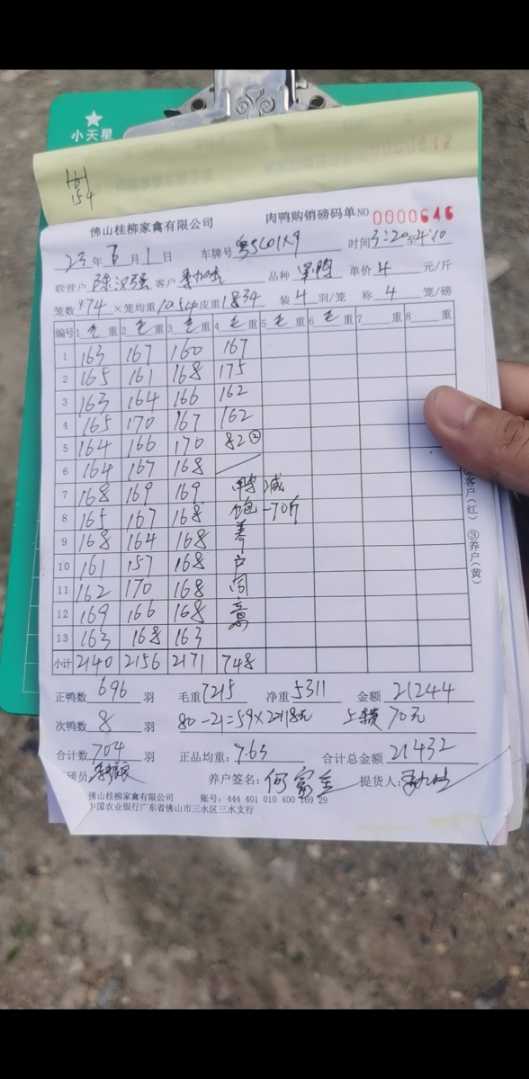 小天星
154
佛山桂柳家禽有限公司 肉鸭购销磅码单 NO 0000646
23年 6月 1日 车牌号 时间3:20至4:10
收费户 客户 品种 单价 4 元/斤
笼数174×笼均重10.54皮重1834 装 4 羽/笼 称 4 笼/磅
编号 1 毛 重 2 毛 重 3 毛 重 4 毛 重 5 毛 重 6 毛 重 7 重 8 重
1 163 167 160 167
2 165 161 168 175
3 163 164 166 162
4 165 170 167 162
5 164 166 170 82②
6 164 167 168
7 168 169 169 鸭 减
8 165 167 168 饱 -70斤
9 168 164 168 养
10 161 157 168 户
11 162 170 168 同
12 169 166 168 意
13 163 168 163
小计 2140 2156 2171 748
正鸭数 696 羽 毛重 7215 净重 5311 金额 21244
次鸭数 8 羽 80-21=59×2 118元 70元
合计数 704 羽 正品均重: 7.63 合计总金额 21432
员 养户签名: 何家全 提货人:
佛山桂柳家禽有限公司 账号: 444 401 010 400 169 29
中国农业银行广东省佛山市三水区三水支行
客户(红) ③养户(黄)